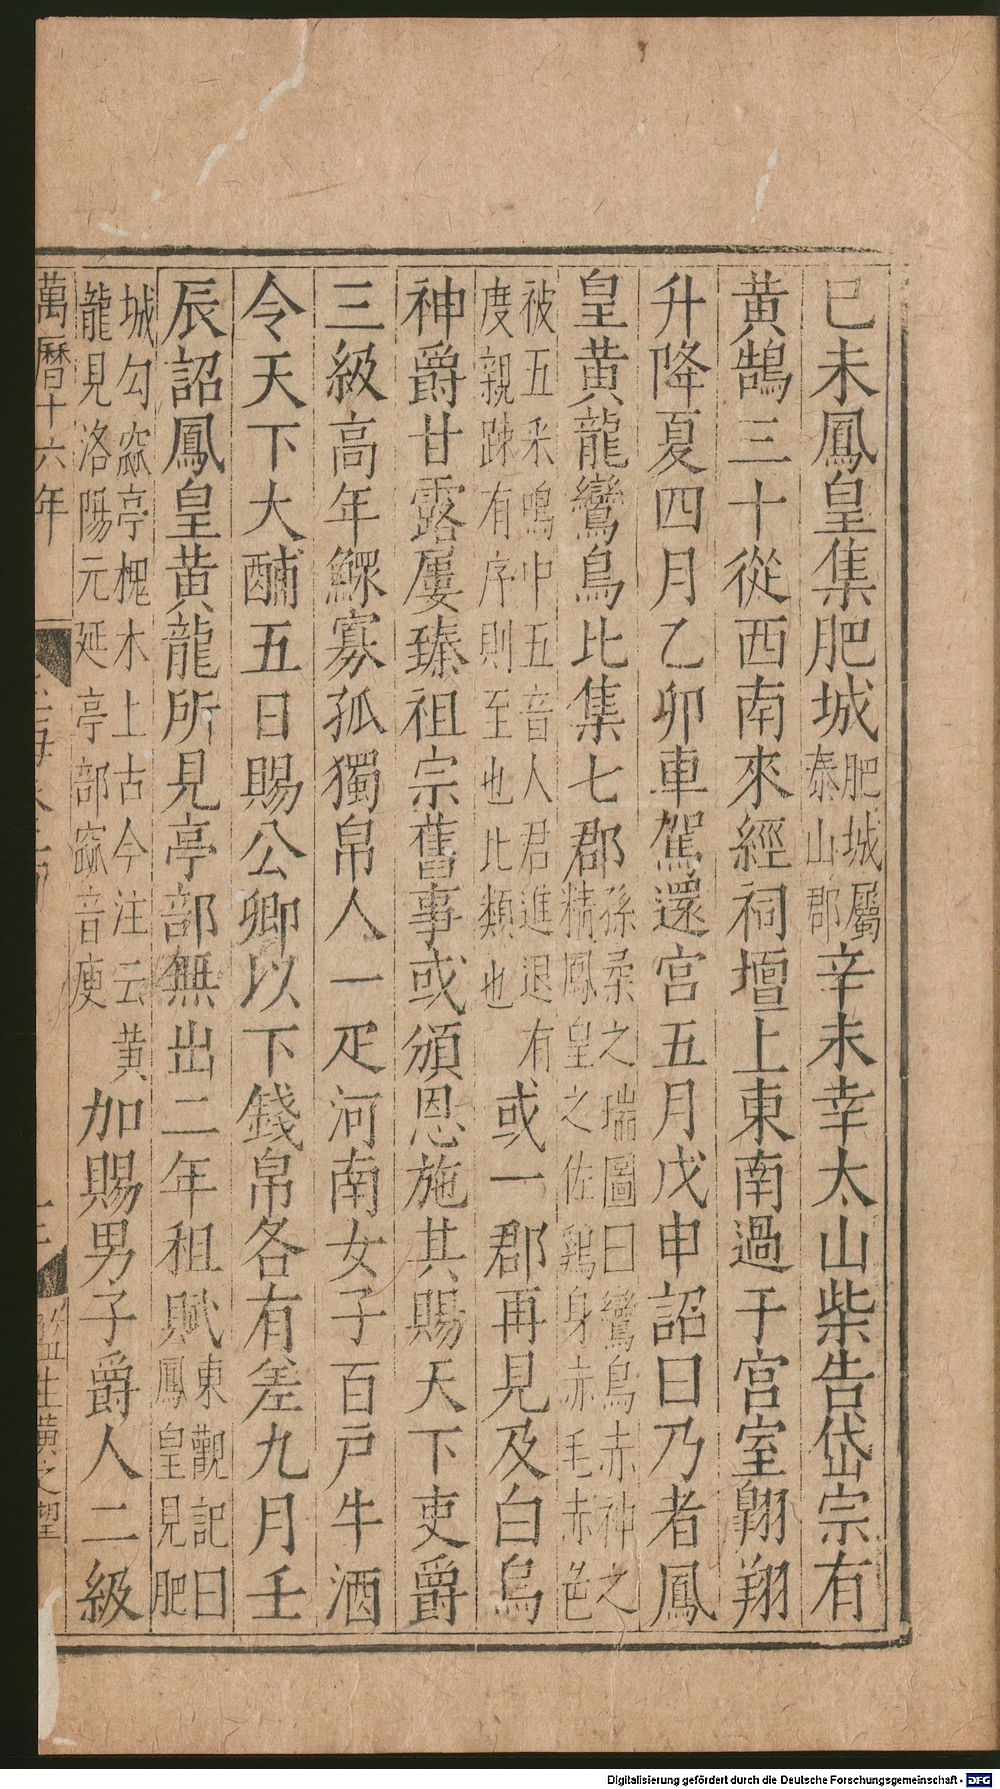 己未鳳皇集肥城肥城屬泰山郡辛未幸太山柴告岱宗有
黄鵠三十從西南來經祠壇上東南過于宫室翱翔
升降夏四月乙卯車駕還宫五月戊申詔曰乃者鳳
皇黄龍鸞鳥比集七郡孫柔之瑞圖曰鸞鳥赤神之精鳳皇之佐雞身赤毛赤色
被五采鳴中五音人君進退有度親踈有序則至也比類也或一郡再見及白烏
神爵甘露屢臻祖宗舊事或頒恩施其賜天下吏爵
三級高年鰥寡孤獨帛人一疋河南女子百戸牛酒
令天下大酺五日賜公卿以下錢帛各有差九月壬
辰詔鳳皇黄龍所見亭部無出二年租賦東觀記曰鳳皇見肥
城勾窳亭槐木上古今注云黄龍見洛陽元延亭部窳音庾加賜男子爵人二級
萬曆十六年
監生黄之望
Digitalisierung gefördert durch die Deutsche Forschungsgemeinschaft - DFG